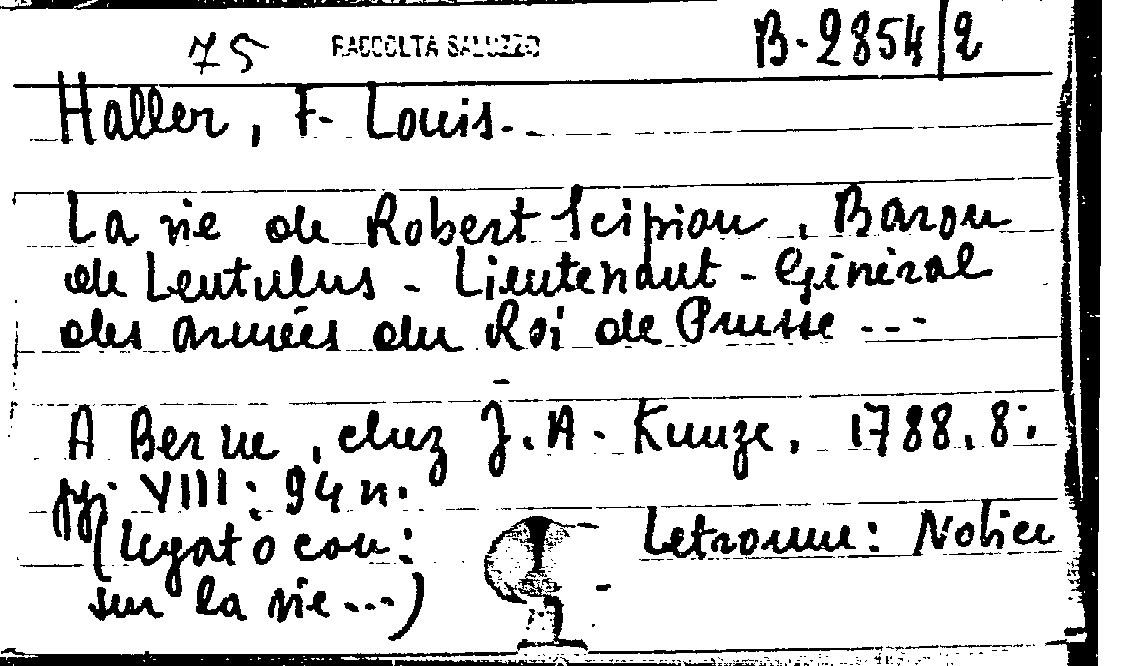 75 RACCOLTA SALUZZO B-2854/2
Haller, F- Louis.
La vie de Robert Scipion, Baron
de Lentulus - Lieutenant-Général
des armées du Roi de Prusse ---
A Berne, chez J.A. Kunze, 1788, 8:
pp: VIII: 94 n.
(legato con: Letronne: Notice
sur la vie ---)